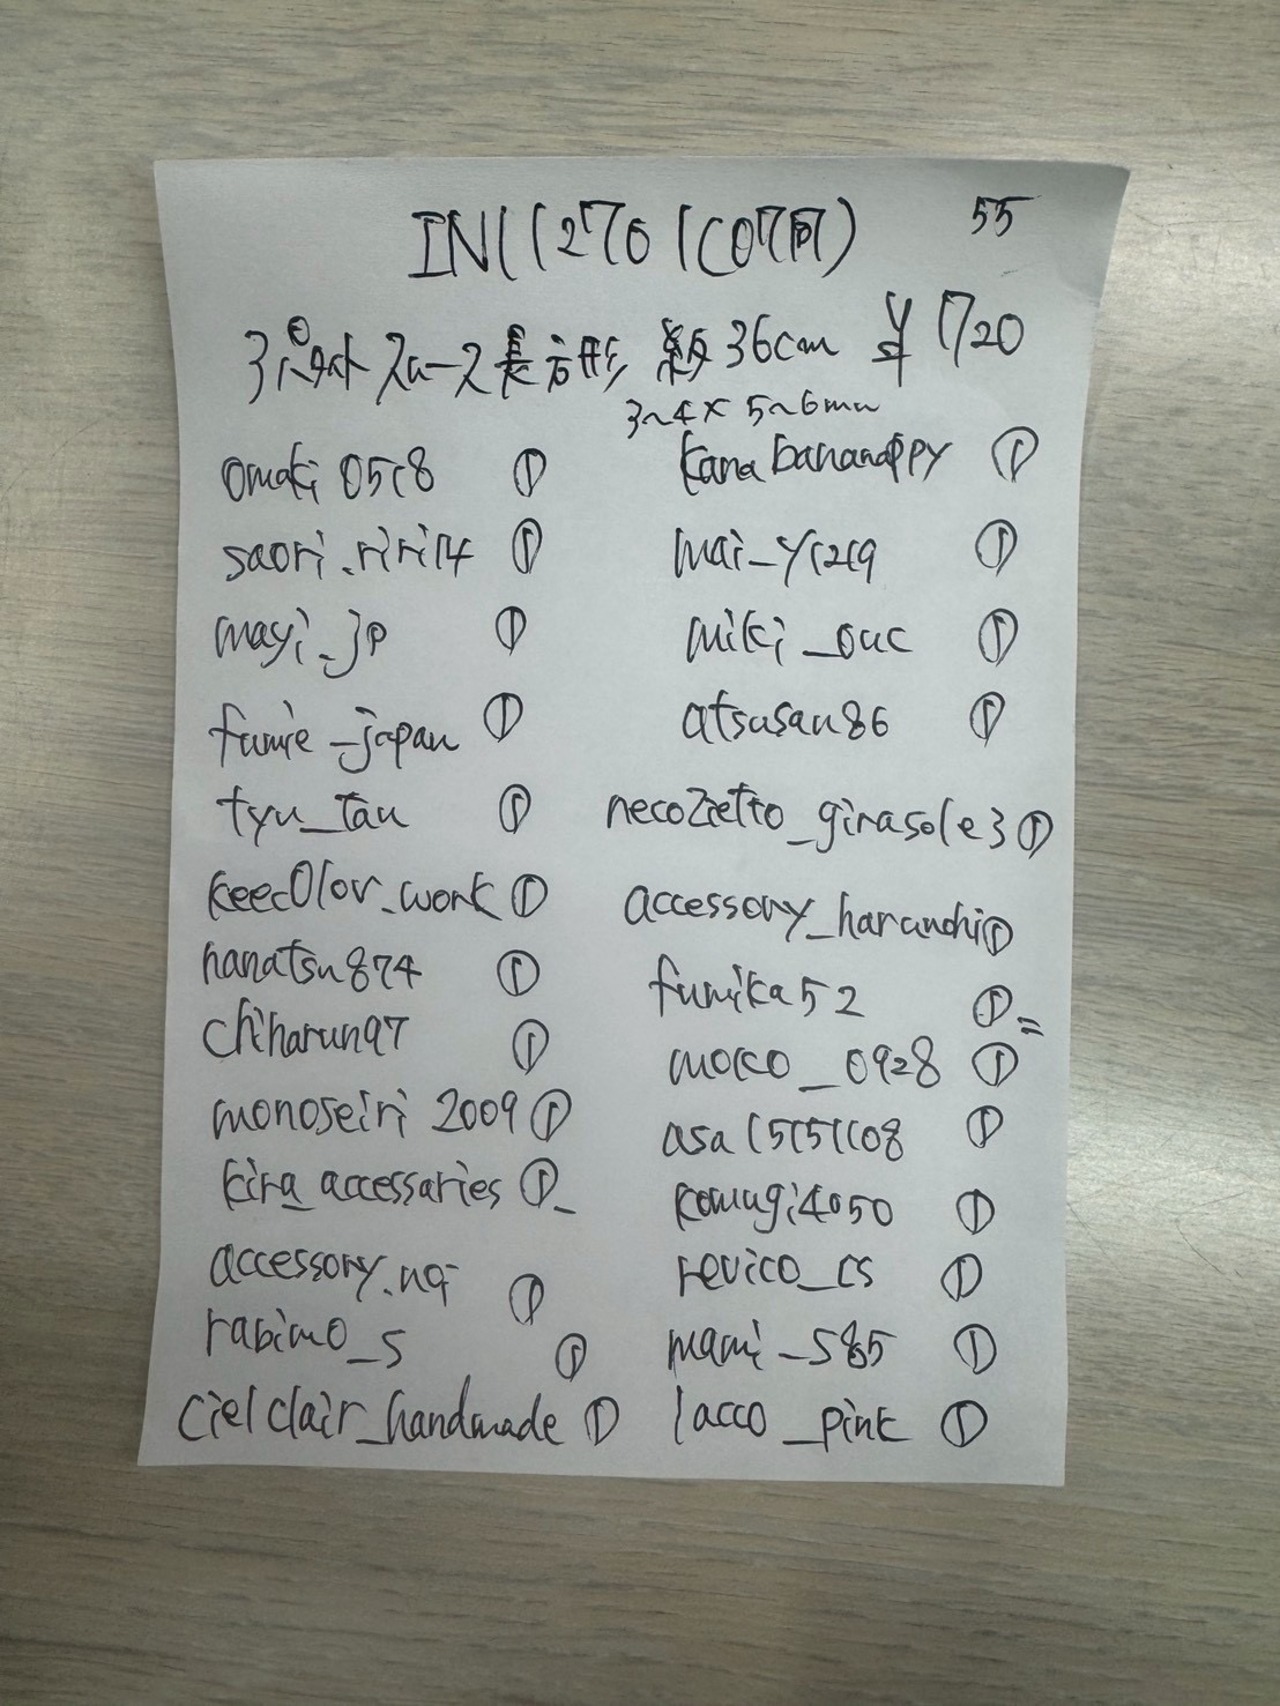 IN1127601(07月)
55
アパタイトスムース長方形 約36cm 半 ¥1720
3~4×5~6mm
omaki0518 ①
saori.riri14 ①
mayi_jp ①
fumie_japan ①
tyu_tau ①
keecolor_work ①
nanatsu874 ①
chiharun97 ①
monoseiri2009 ①
kira_accessaries ①
accessory.nq ①
rabimo_s ①
cielclair_handmade ①
kanabananappy ①
mai_y1219 ①
miki_ouc ①
atsusan86 ①
necozietto_girasole3 ①
accessory_harunohi ①
fumika52 ①
mocco_0928 ①
asa15151108 ①
komugi4050 ①
revico_cs ①
mami_s85 ①
lacco_pink ①